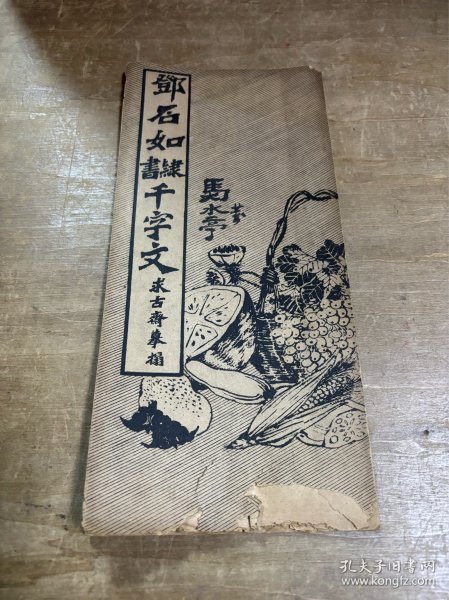 鄧石如隸書千字文
求古齋摹搨
馬水亭
孔夫子旧书网
www.kongfz.com